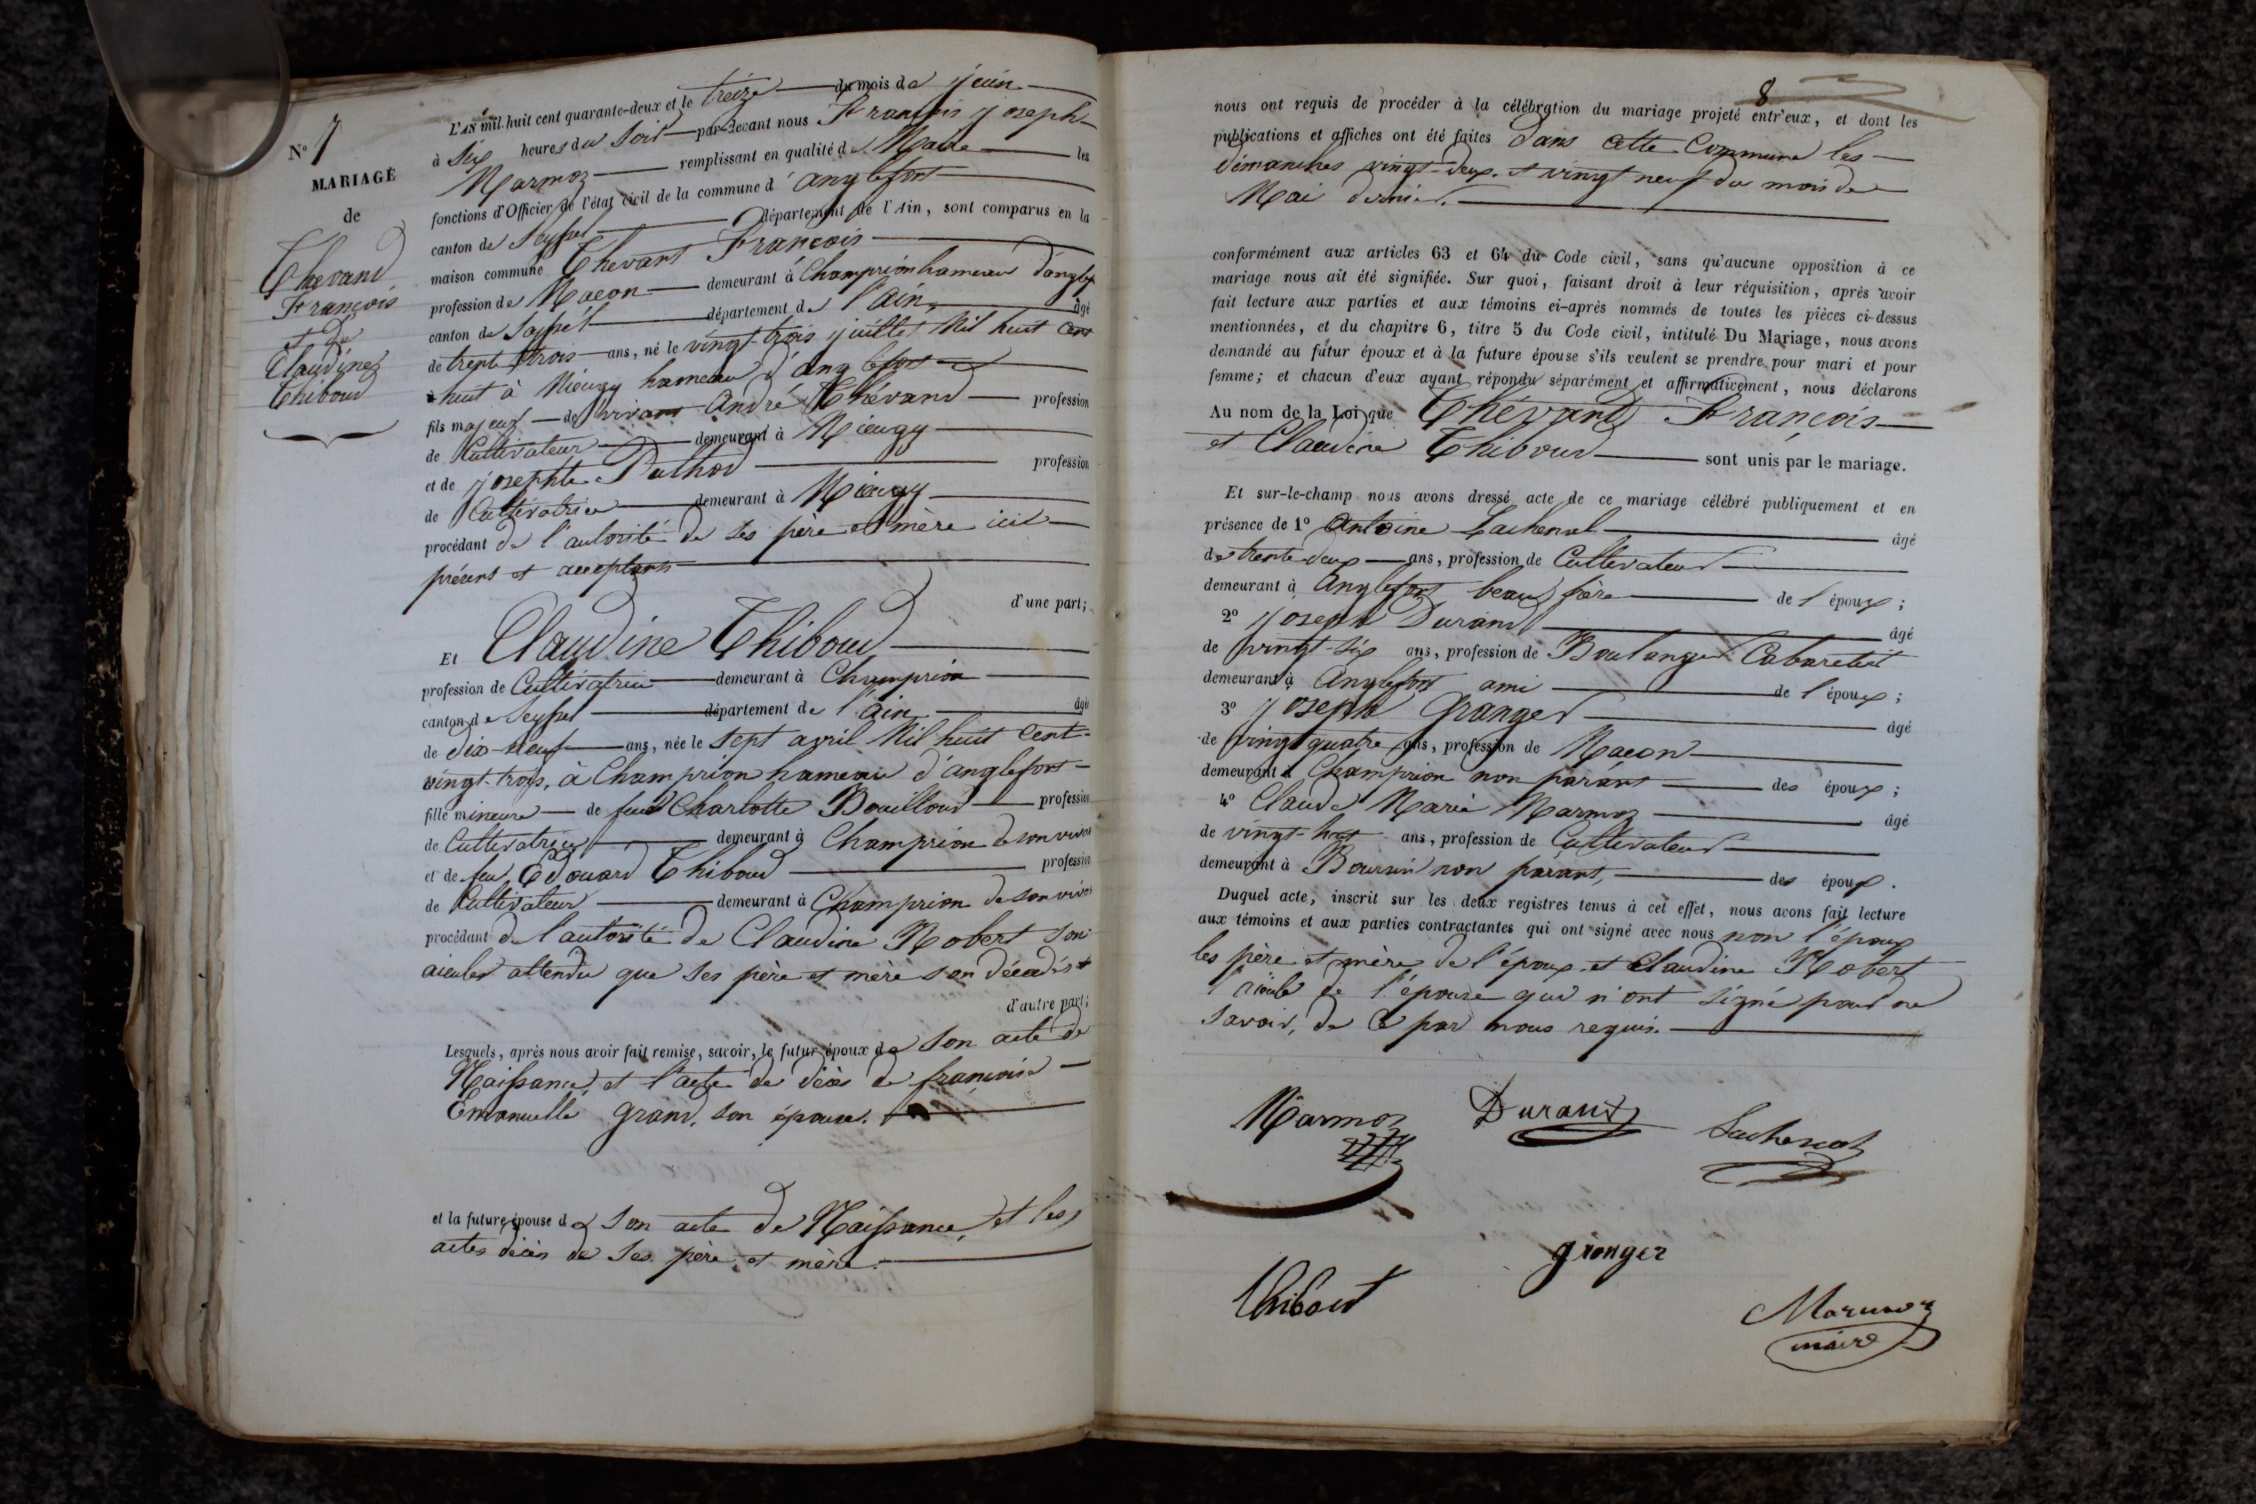 N° 7
MARIAGE
de
Thevand
François
et De
Claudine
Thiboud
L'AN mil huit cent quarante-deux et le treize du mois de juin
à six heures du soir par-devant nous François joseph
Marmoz remplissant en qualité de Maire les
fonctions d'Officier de l'état civil de la commune d'anglefort
canton de Seyssel département de l'Ain, sont comparus en la
maison commune Thevant François
profession de Macon demeurant à Champrion hameau d'anglef
canton de Seyssel département de l'ain, âgé
de trente trois ans, né le vingt trois juillet Mil huit cent
huit à Mieugy hameau d'anglefort
fils majeur de vivant André Thévand profession
de Cultivateur demeurant à Mieugy
et de josephte Pathod profession
de Cultivatrice demeurant à Mieugy
procédant de l'autorité de ses père et mère ici
présent et acceptants
d'une part;
Et Claudine Thiboud
profession de Cultivatrice demeurant à Champrion
canton de Seyssel département de l'ain âgé
de dix-neuf ans, née le sept avril Mil huit Cent
vingt-trois, à Champrion hameau d'anglefort
fille mineure de feue Charlotte Bouilloud profession
de Cultivatrice demeurant à Champrion de son vivant
et de feu Edouard Thiboud profession
de Cultivateur demeurant à Champrion de son vivant
procédant de l'autorité de Claudine Robert son
aieule attendu que ses père et mère son décédés
d'autre part;
Lesquels, après nous avoir fait remise, savoir, le futur époux de son acte de
Naissance, et l'acte de décès de françoise
Emanuelle grand, son épouse.
et la future épouse de son acte de Naissance, et les
actes décès de ses père et mère.
8
nous ont requis de procéder à la célébration du mariage projeté entr'eux, et dont les
publications et affiches ont été faites dans cette Commune les
dimanches vingt-deux et vingt neuf du mois de
Mai dernier.
conformément aux articles 63 et 64 du Code civil, sans qu'aucune opposition à ce
mariage nous ait été signifiée. Sur quoi, faisant droit à leur réquisition, après avoir
fait lecture aux parties et aux témoins ci-après nommés de toutes les pièces ci-dessus
mentionnées, et du chapitre 6, titre 5 du Code civil, intitulé Du Mariage, nous avons
demandé au futur époux et à la future épouse s'ils veulent se prendre pour mari et pour
femme; et chacun d'eux ayant répondu séparément et affirmativement, nous déclarons
Au nom de la Loi que Thévand François
et Claudine Thiboud sont unis par le mariage.
Et sur-le-champ nous avons dressé acte de ce mariage célébré publiquement et en
présence de 1° Antoine Lachenal âgé
de trente-deux ans, profession de Cultivateur
demeurant à Anglefort beau frère de l'époux;
2° joseph Durand âgé
de vingt-six ans, profession de Boulanger Cabaretier
demeurant à Anglefort ami de l'époux;
3° joseph Granger âgé
de vingt quatre ans, profession de Macon
demeurant à Champrion non parent des époux;
4° Claude Marie Marmoz âgé
de vingt-huit ans, profession de Cultivateur
demeurant à Boursin non parent, des époux.
Duquel acte, inscrit sur les deux registres tenus à cet effet, nous avons fait lecture
aux témoins et aux parties contractantes qui ont signé avec nous non l'époux
les père et mère de l'époux et Claudine Robert
l'aieule de l'épouse qui n'ont signé pour ne
savoir, de ce par nous requis.
Marmoz Durand Lachenal
granger
Thiboud
Marmoz
maire